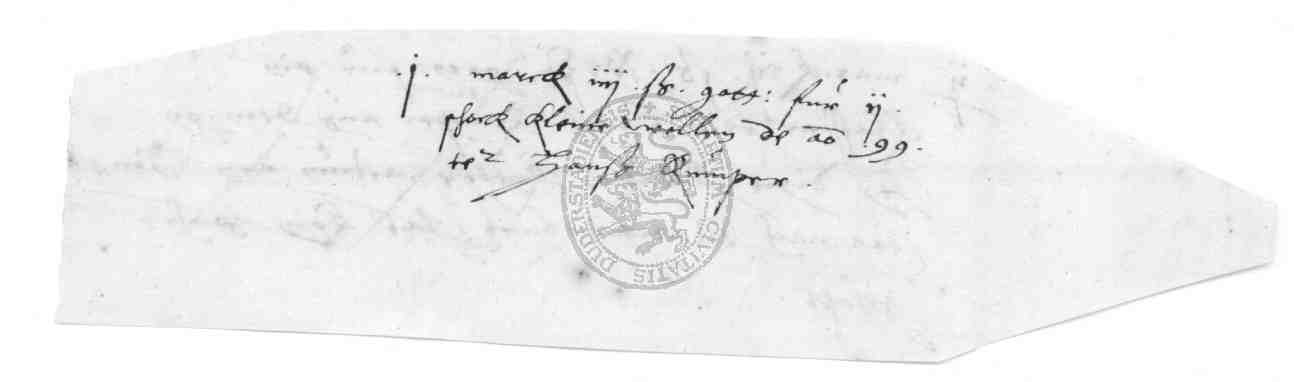 .j. marck iiij ß. gott: für ij.
schock kleine wellen de ao 99.
te² Hanß Kniper.
DUDERSTATENSIS CIVITATIS